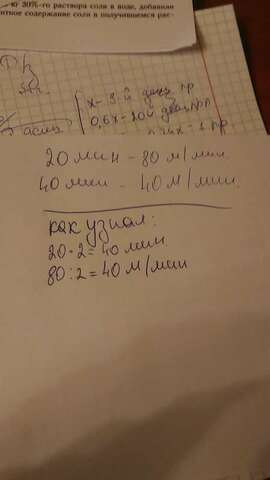 -ю 30%-го раствора соли в воде, добавили
нтное содержание соли в получившемся рас-
x-3-й день пр
20 мин - 80 м/мин.
40 мин - 40 м/мин.
как узнал:
20·2=40 мин
80:2=40 м/мин